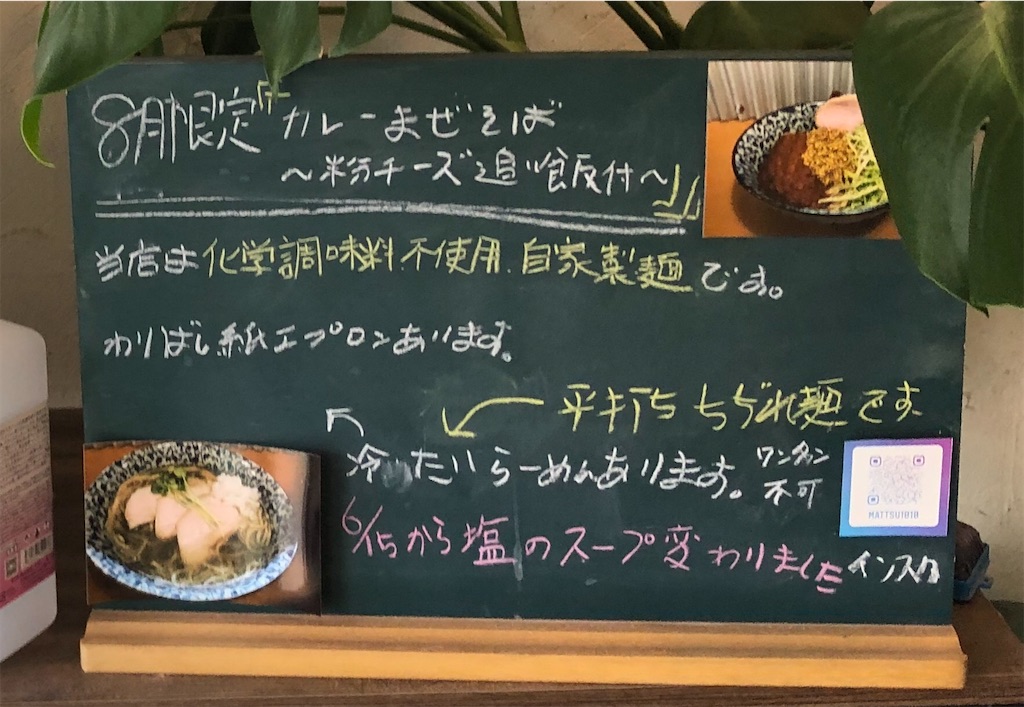 8月限定 カレーまぜそば
～粉チーズ追い飯付～
当店は化学調味料不使用、自家製麺です。
わりばし紙エプロンあります。
平打ちちぢれ麺です
冷たいらーめんあります。ワンタン不可
6/15から塩のスープ変わりました
MATTSU1818
インスタ